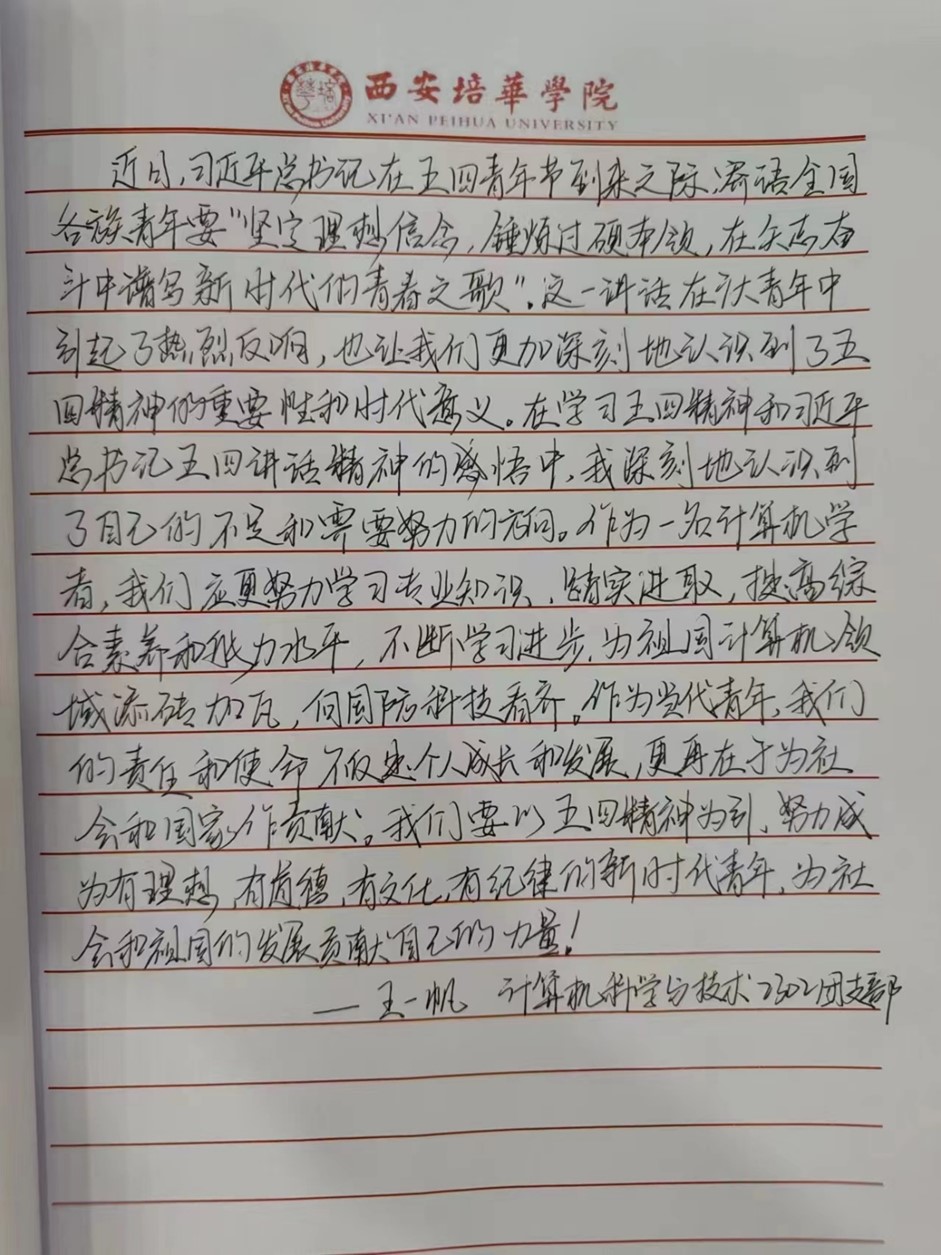 西安培華學院
XI'AN PEIHUA UNIVERSITY
近日，习近平总书记在五四青年节到来之际，寄语全国
各族青年要“坚定理想信念，锤炼过硬本领，在矢志奋
斗中谱写新时代的青春之歌”。这一讲话在广大青年中
引起了热烈反响，也让我们更加深刻地认识到了五
四精神的重要性和时代意义。在学习五四精神和习近平
总书记五四讲话精神的感悟中，我深刻地认识到
了自己的不足和需要努力的方向。作为一名计算机学
者，我们应更努力学习专业知识，踏实进取，提高综
合素养和能力水平，不断学习进步，为祖国计算机领
域添砖加瓦，向国防科技看齐。作为当代青年，我们
的责任和使命不仅是个人成长和发展，更再在于为社
会和国家作贡献。我们要以五四精神为引，努力成
为有理想，有道德，有文化，有纪律的新时代青年，为社
会和祖国的发展贡献自己的力量！
——王一帆 计算机科学与技术2302团支部